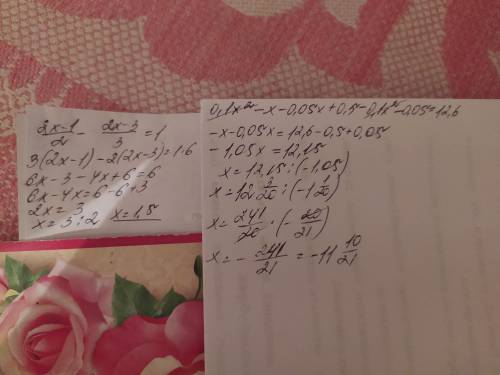 2x-1/2 - 2x-3/3 = 1
3(2x-1)-2(2x-3)=1·6
6x-3-4x+6=6
6x-4x=6-6+3
2x=3
x=3:2 x=1,5
0,1x²-x-0,05x+0,5-0,1x²-0,05=12,6
-x-0,05x=12,6-0,5+0,05
-1,05x=12,15
x=12,15:(-1,05)
x=12 3/20:(-1 1/20)
x=241/20·(-20/21)
x=-241/21=-11 10/21